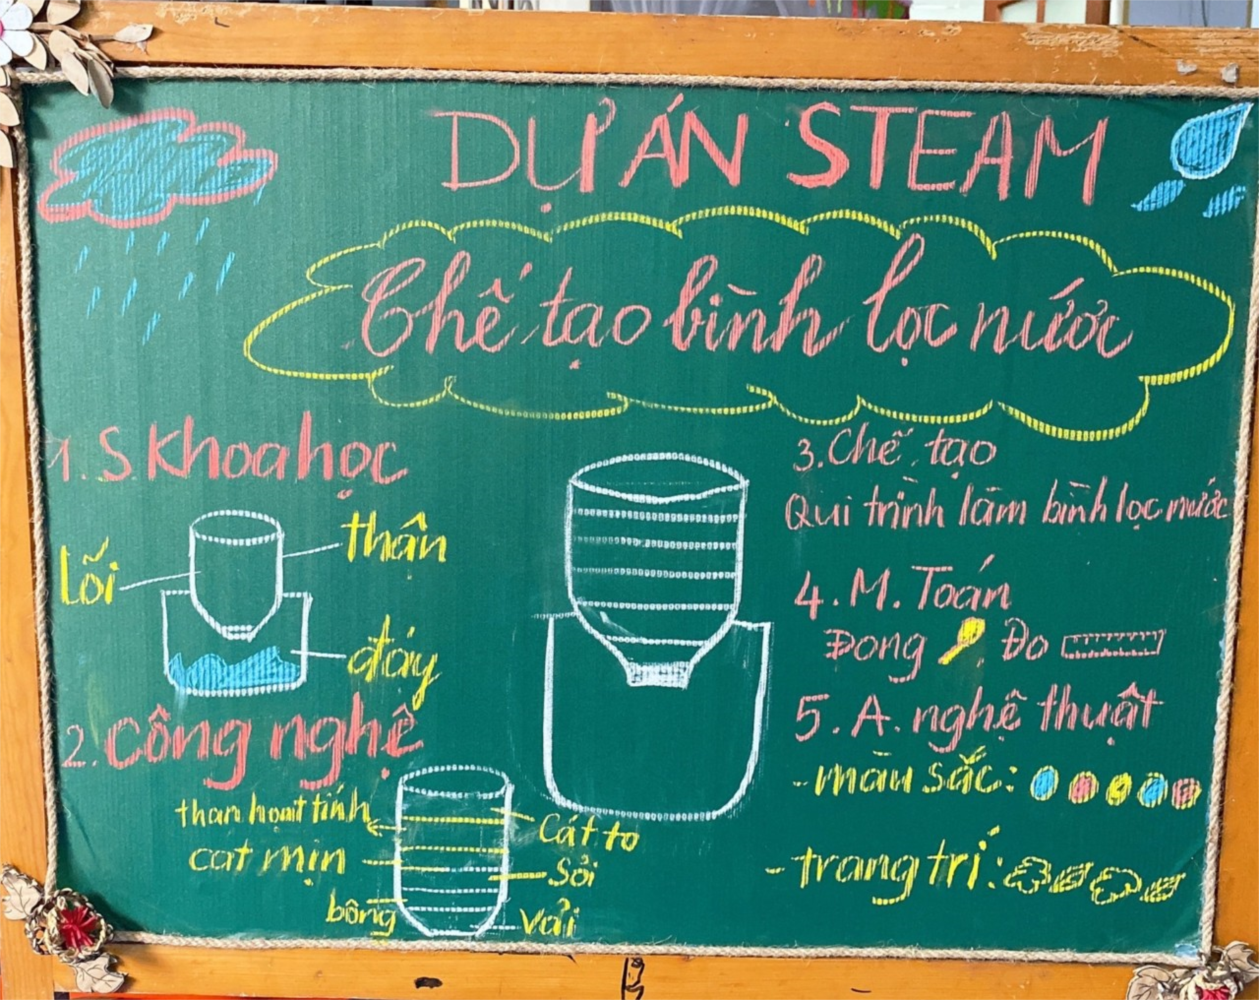 DỰ ÁN STEAM
Chế tạo bình lọc nước
1. S Khoa học
lõi
thân
đáy
2. Công nghệ
than hoạt tính
cat mịn
bông
Cát to
Sỏi
vải
3. Chế tạo
Qui trình làm bình lọc nước
4. M. Toán
Đong Đo
5. A. nghệ thuật
- màu sắc:
- trang trí: